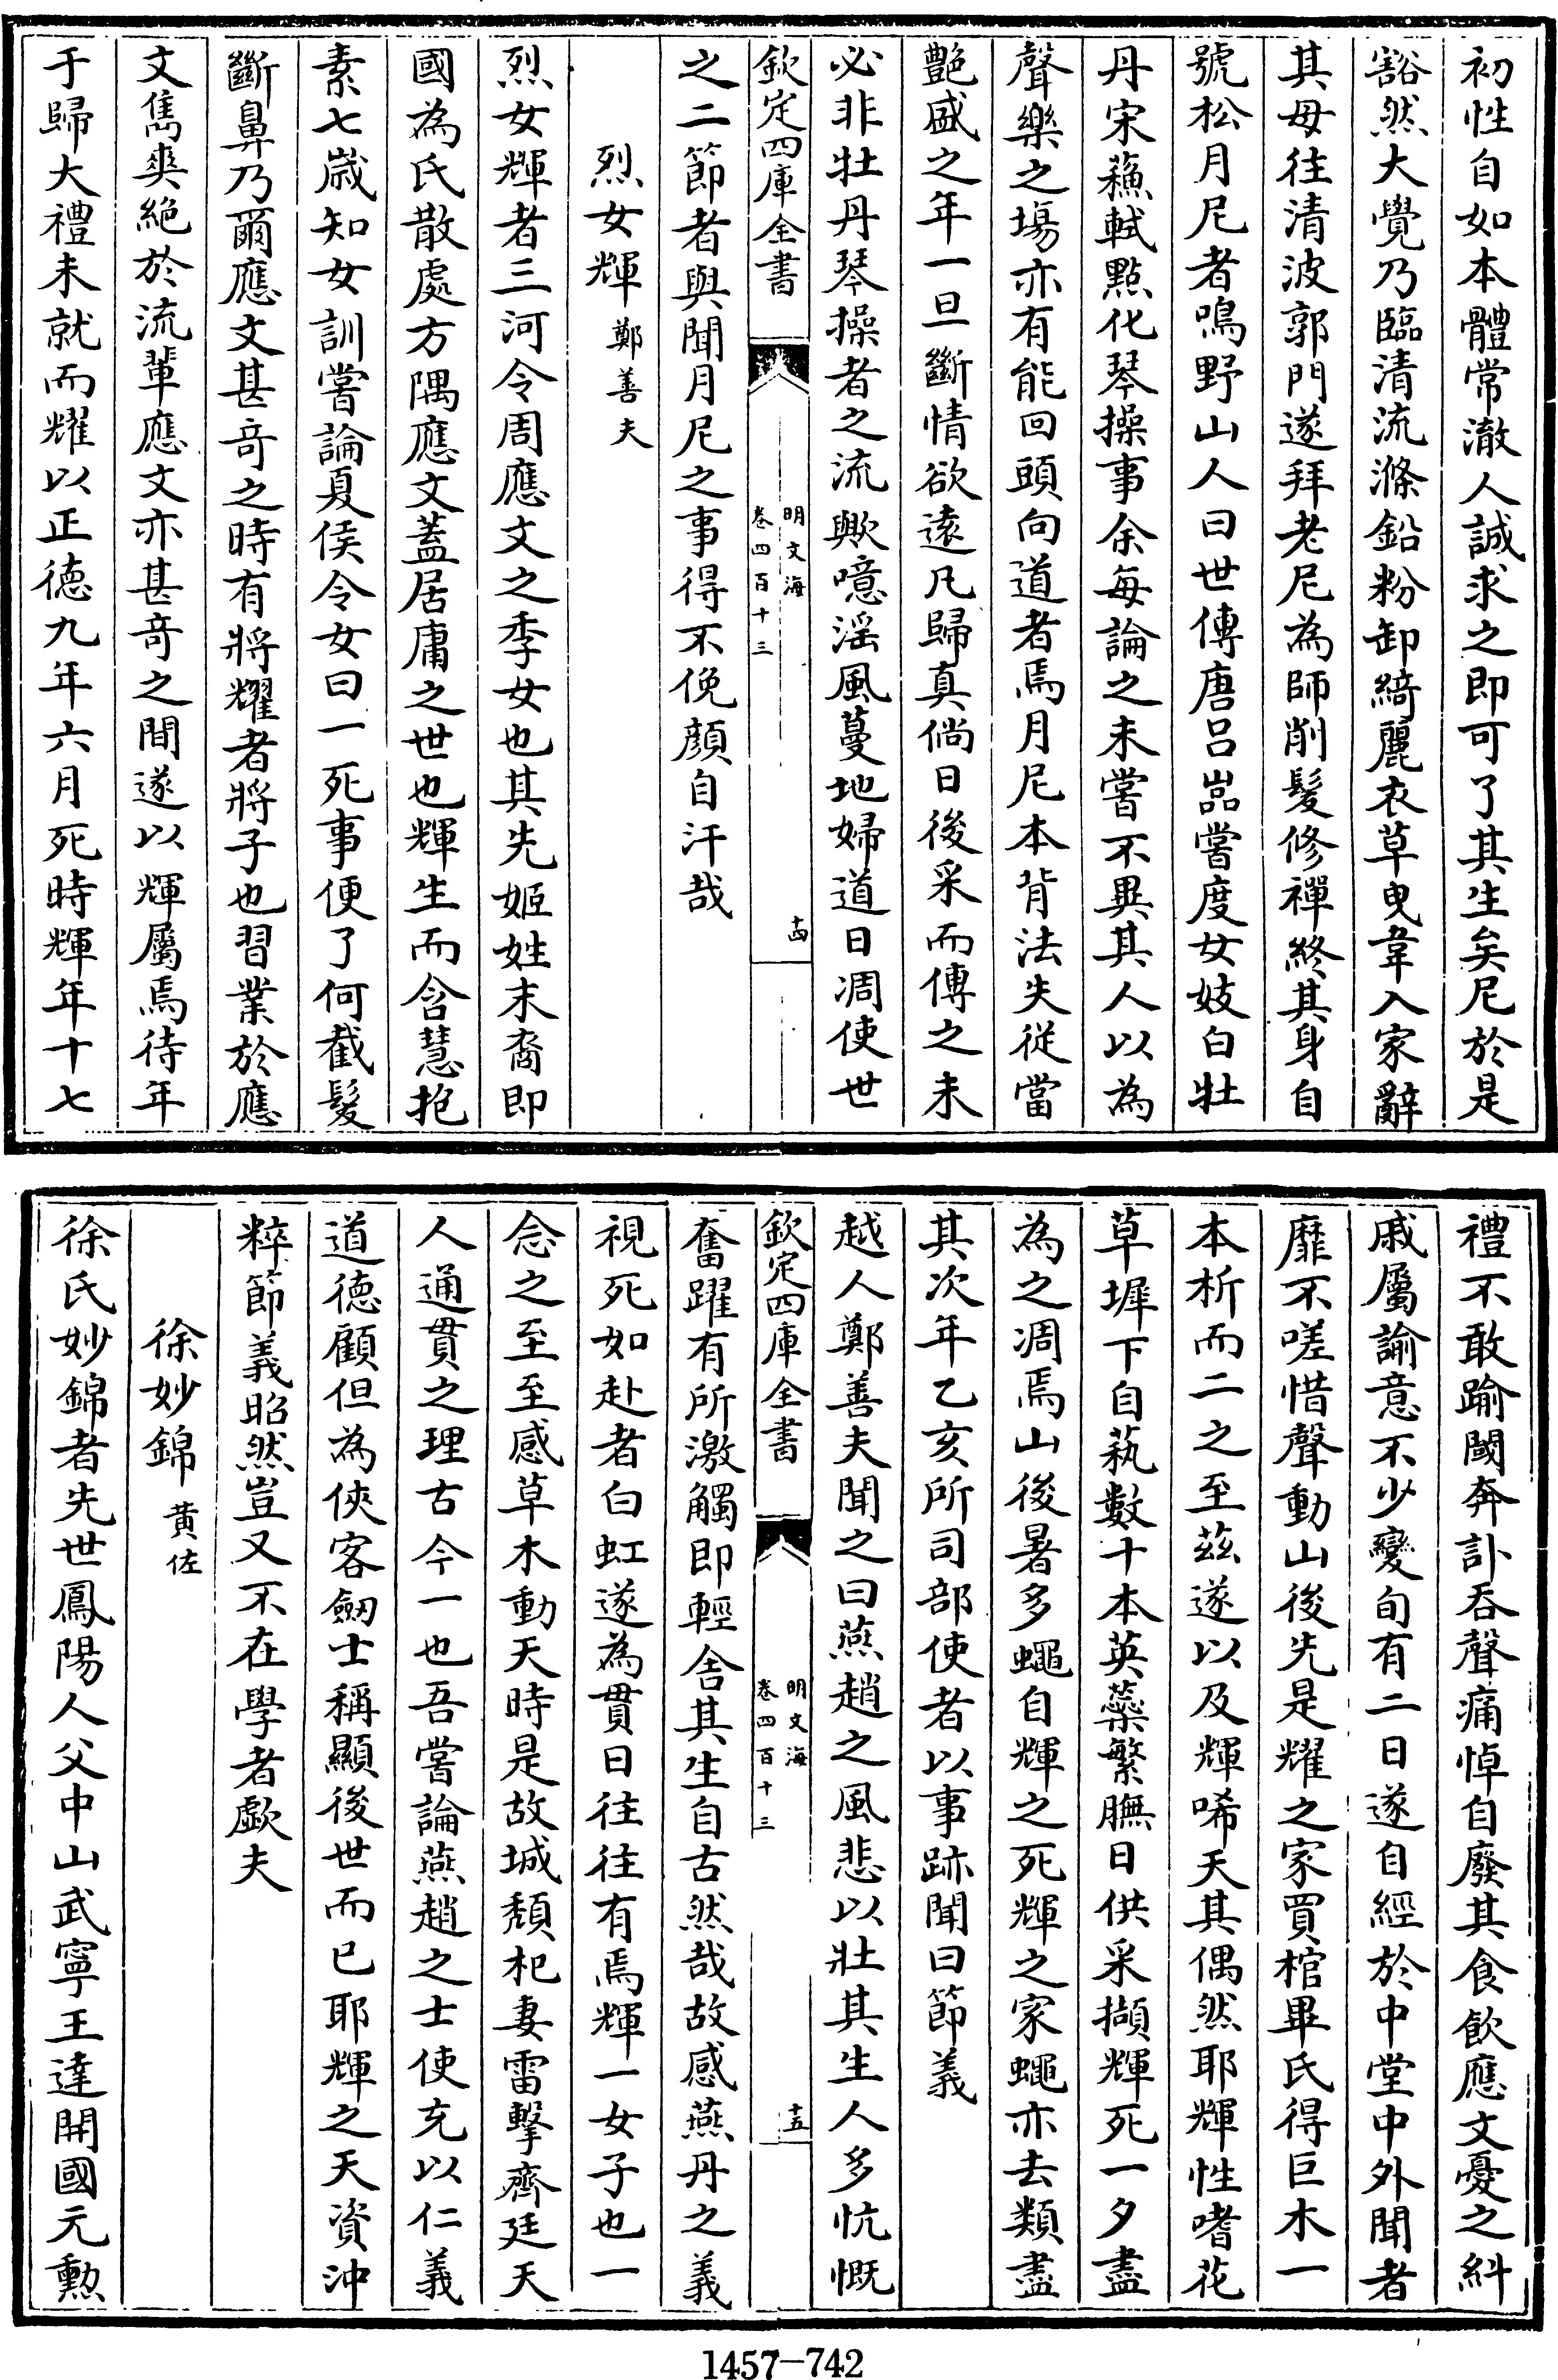 初性自如本體常澈人誠求之即可了其生矣尼於是
豁然大覺乃臨清流滌鉛粉卸綺麗衣草曳韋入家辭
其母往清波郭門遂拜老尼為師削髮修禪終其身自
號松月尼者鳴野山人曰世傳唐呂嵓嘗度女妓白牡
丹宋蘓軾點化琴操事余每論之未嘗不異其人以為
聲樂之塲亦有能回頭向道者焉月尼本背法失從當
艶盛之年一旦斷情欲遠凡歸真倘日後采而傳之未
必非牡丹琴操者之流歟噫滛風蔓地婦道日凋使世
欽定四庫全書
明文海
卷四百十三
十四
之二節者與聞月尼之事得不俛顔自汗哉
烈女輝 鄭善夫
烈女輝者三河令周應文之季女也其先姬姓末裔即
國為氏散處方隅應文葢居庸之世也輝生而含慧抱
素七歲知女訓嘗論夏侯令女曰一死事便了何截髮
斷鼻乃爾應文甚竒之時有將耀者將子也習業於應
文雋爽絶於流輩應文亦甚竒之間遂以輝屬焉待年
于歸大禮未就而耀以正德九年六月死時輝年十七
禮不敢踰閾奔訃吞聲痛悼自廢其食飲應文憂之糾
戚屬諭意不少變旬有二日遂自經於中堂中外聞者
靡不嗟惜聲動山後先是耀之家買棺畢氏得巨木一
本析而二之至茲遂以及輝唏天其偶然耶輝性嗜花
草墀下自蓺數十本英蘂繁膴日供采擷輝死一夕盡
為之凋焉山後暑多蠅自輝之死輝之家蠅亦去類盡
其次年乙亥所司部使者以事跡聞曰節義
越人鄭善夫聞之曰燕趙之風悲以壯其生人多忼慨
欽定四庫全書
明文海
卷四百十三
十五
奮躍有所激觸即輕舎其生自古然哉故感燕丹之義
視死如赴者白虹遂為貫日往往有焉輝一女子也一
念之至至感草木動天時是故城頽杞妻雷擊齊廷天
人通貫之理古今一也吾嘗論燕趙之士使充以仁義
道德顧但為俠客劒士稱顯後世而已耶輝之天資沖
粹節義昭然豈又不在學者歟夫
徐妙錦 黄佐
徐氏妙錦者先世鳳陽人父中山武寧王達開國元勲
1457-742